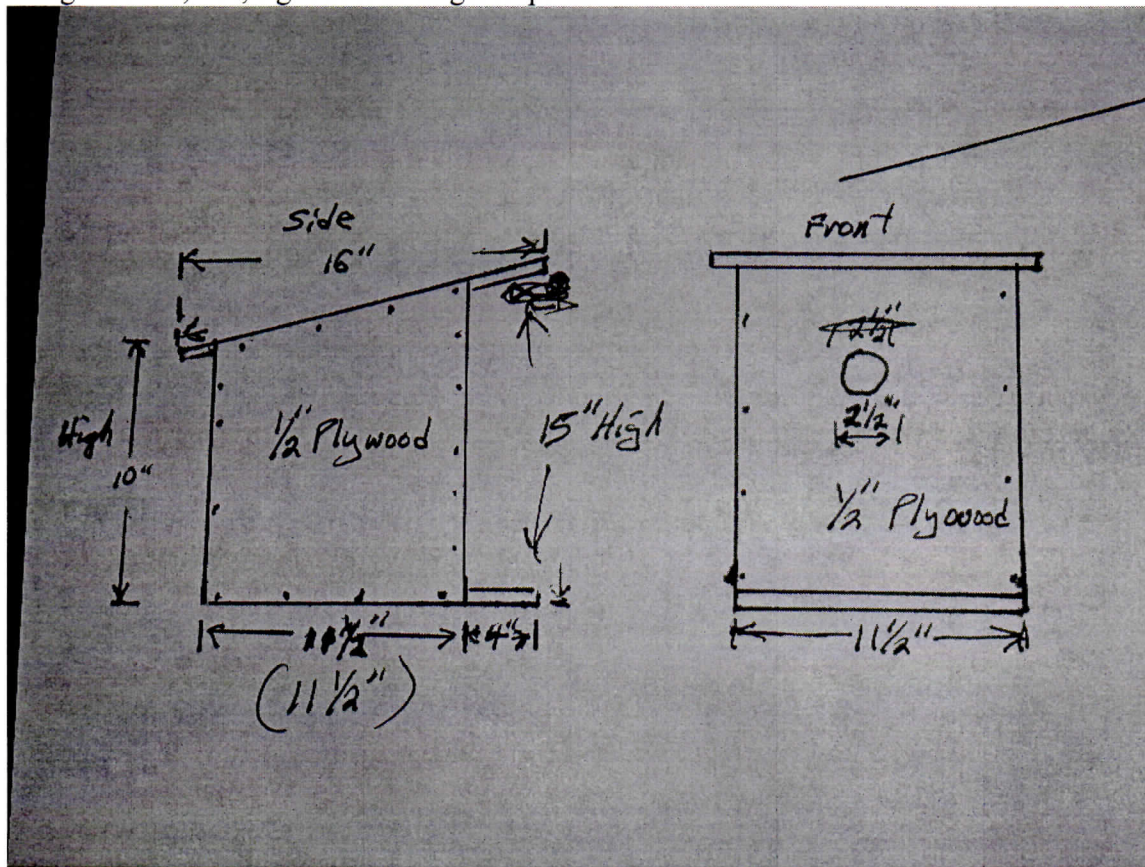 Side
16"
High
10"
1/2" Plywood
15" High
(11 1/2")
Front
2 1/2"
2 1/2"
1/2" Plywood
11 1/2"